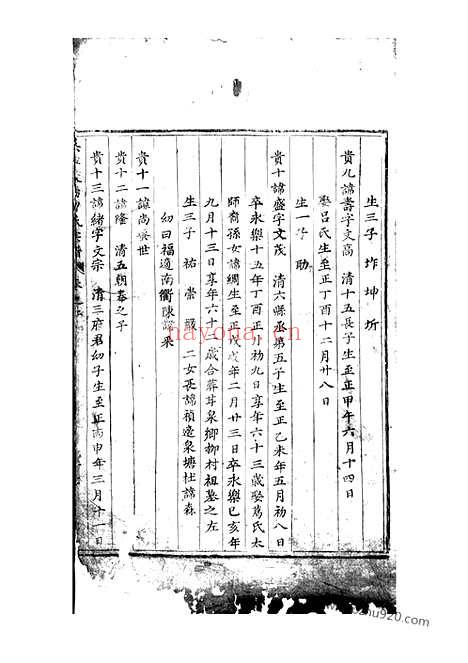 生三子 坼 坤 圻
貴九諱壽字文高 清十五長子生至正甲午六月十四
娶呂氏生至正丁酉十二月廿八日
生一子 助
貴十諱盛字文茂 清六縣丞第五子生至正乙未年五月初八日
卒永樂十五年丁酉正月初九日享年六十三歲娶葛氏太
師裔孫女諱綢生至正戊戌年二月廿三日卒永樂己亥年
九月十三日享年六十二歲合葬苷泉鄉柳村祖墓之左
生三子 祐 崇 嚴 二女長諱禎適泉塘杜諱森
幼曰福適南衢陳諱
貴十一諱尚 世
貴十二諱隆 清五朝奉之子
貴十三諱緒字文宗 清三府君幼子生至正丙申年三月十一日
hayona.cn
zhu920.com